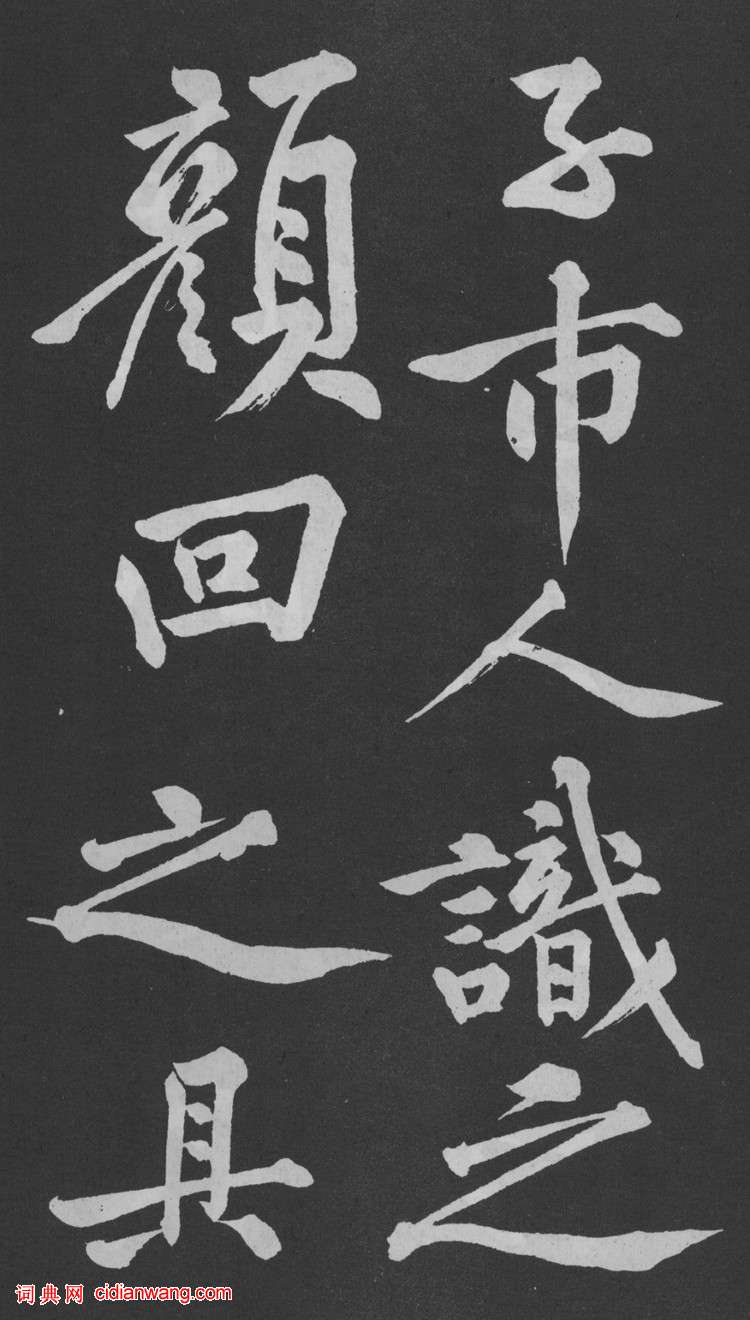 子市人識之
顏回之具
词典网 cidianwang.com